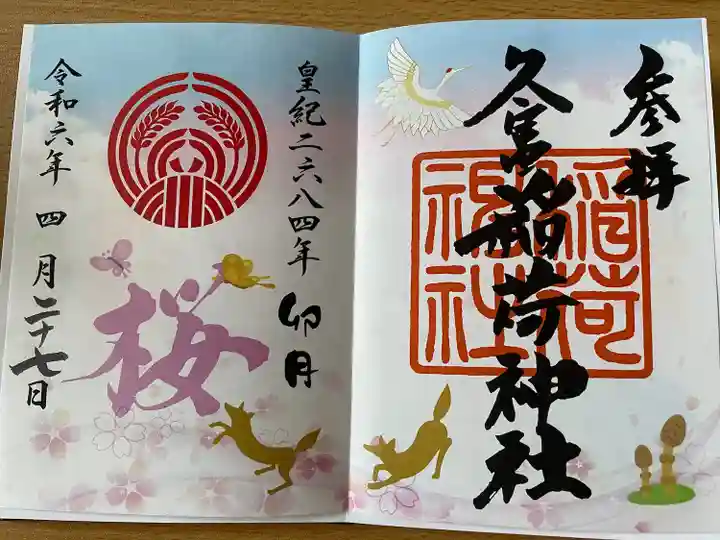 参拝
久富稲荷神社
稲荷
神社
皇紀二六八四年 卯月
桜
令和六年 四月二十七日